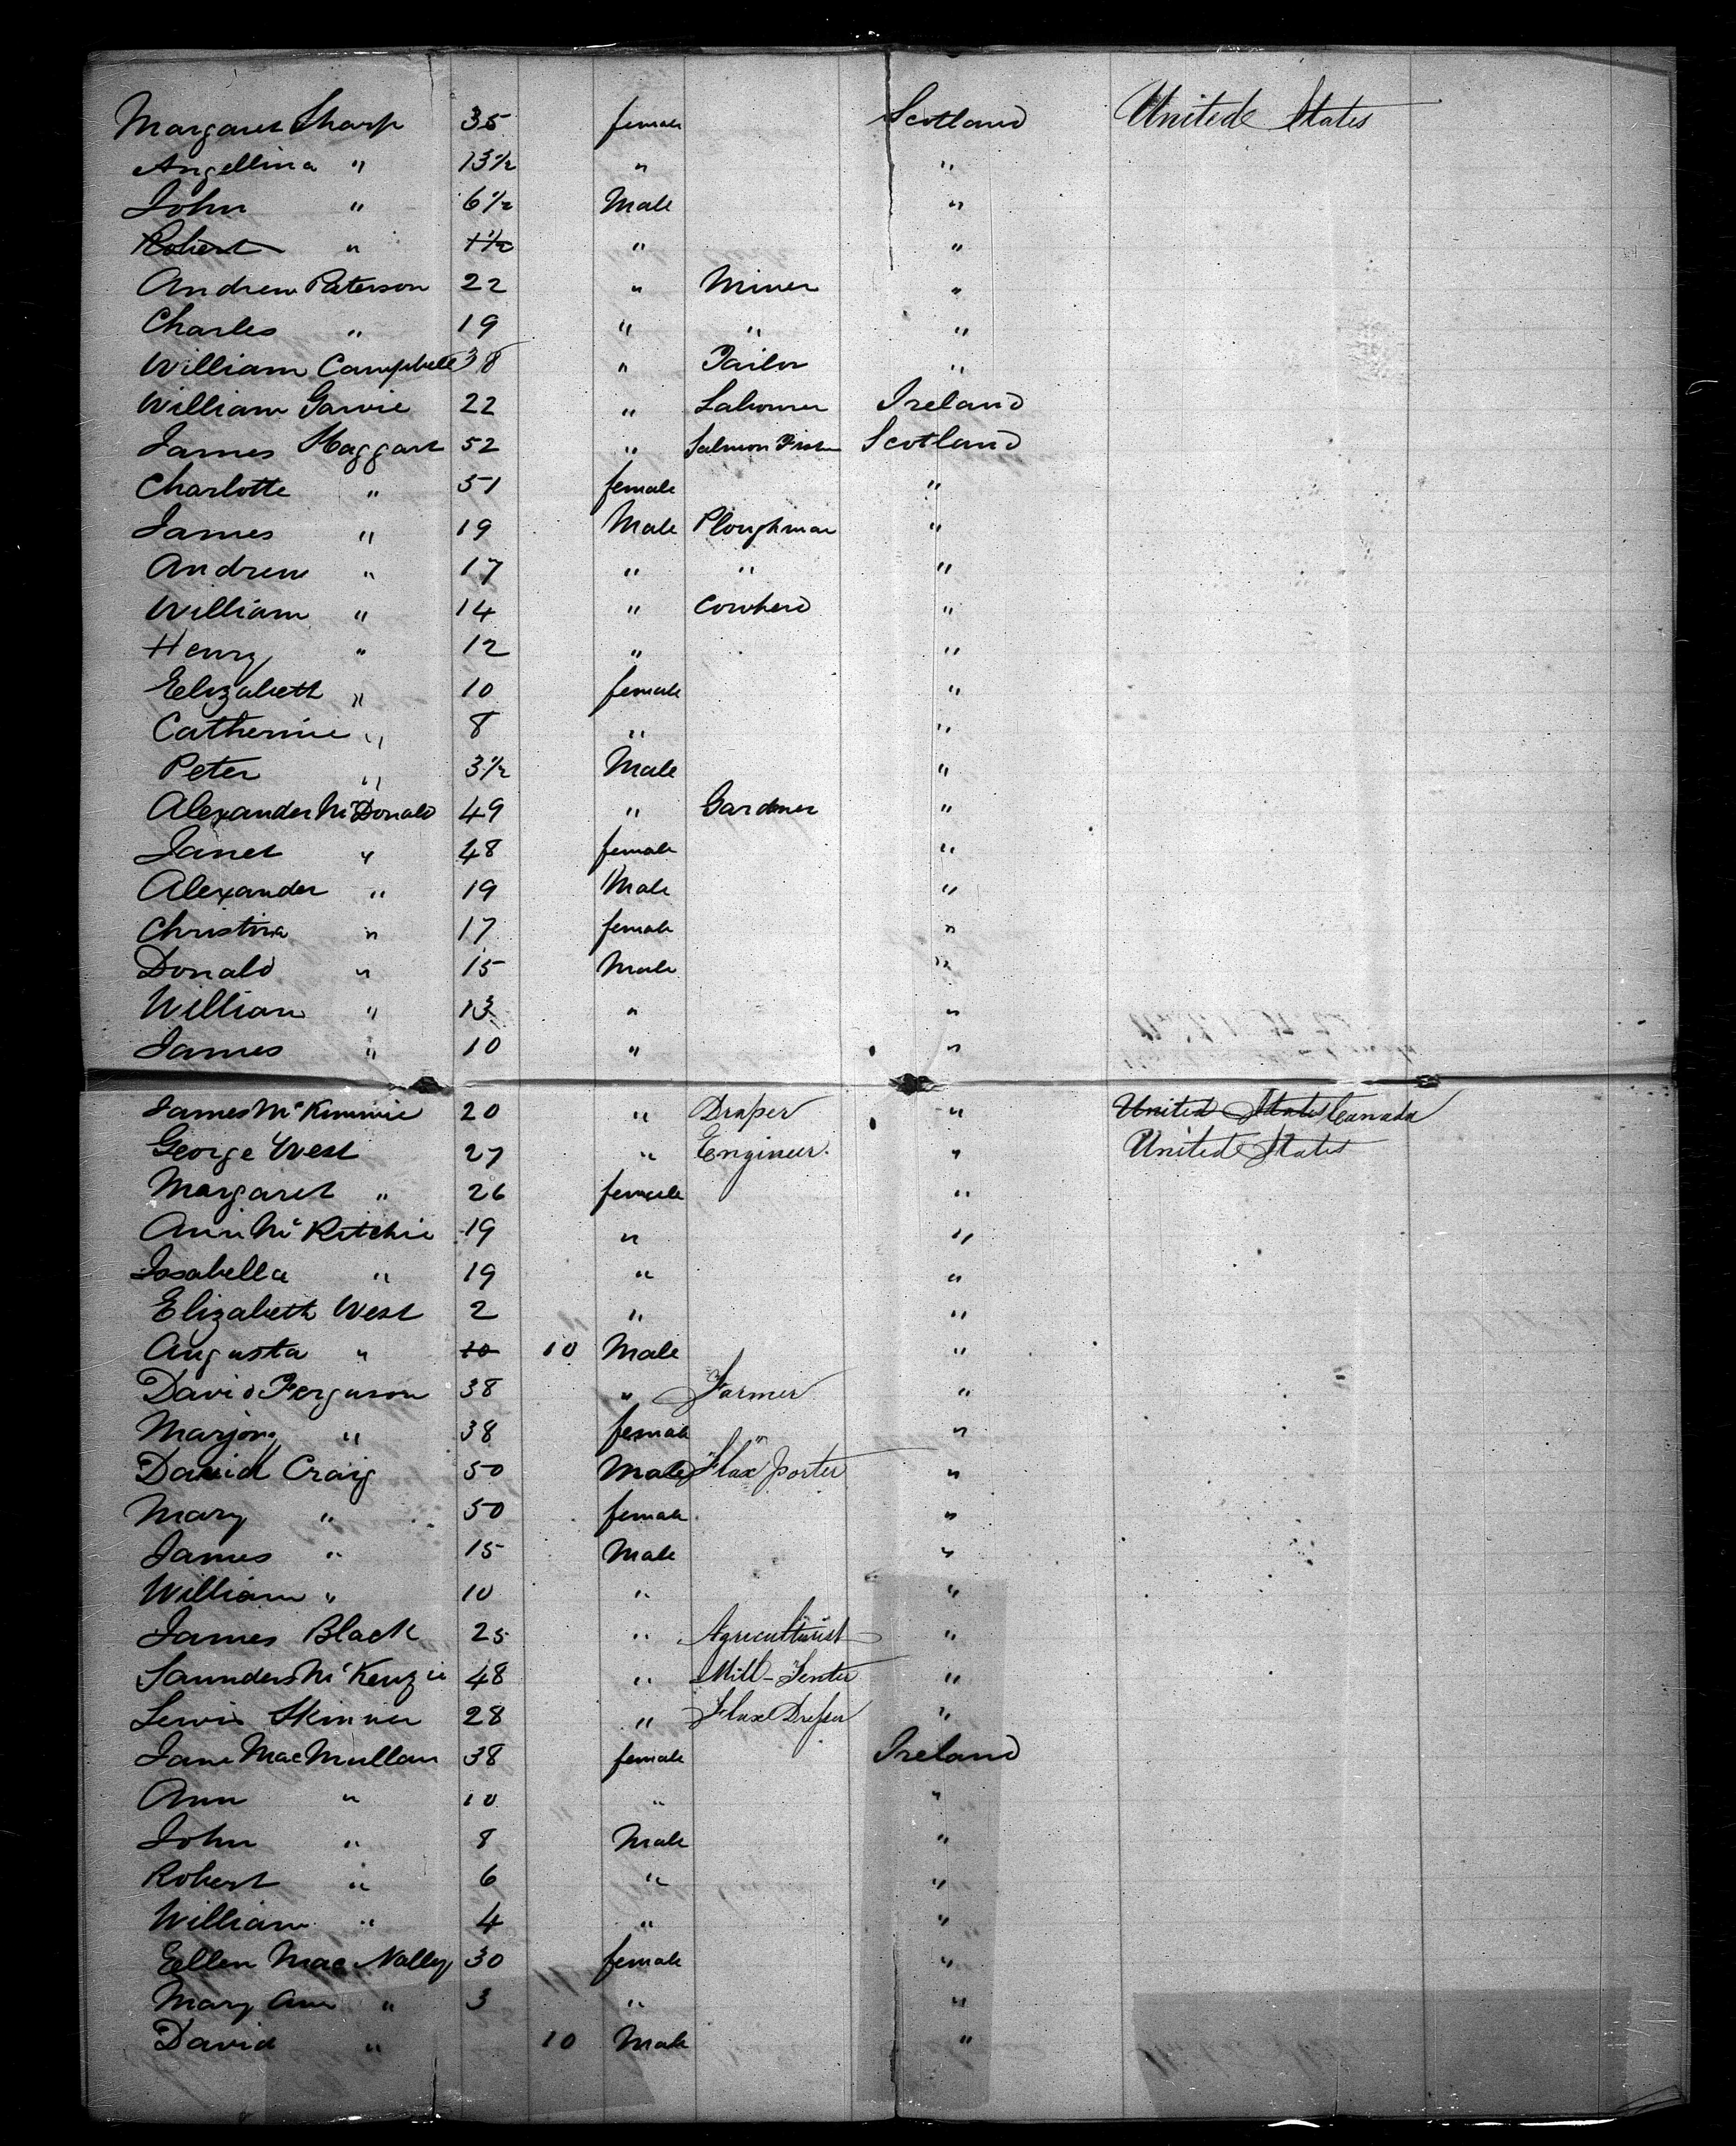 Margaret Sharp 35 female Scotland United States
Angellina " 13½ " "
John " 6½ Male "
Robert " 1½ " "
Andrew Paterson 22 " Miner "
Charles " 19 " " "
William Campbell 38 " Tailor "
William Garvie 22 " Labourer Ireland
James Haggart 52 " Salmon Fisher Scotland
Charlotte " 51 female "
James " 19 Male Ploughman "
Andrew " 17 " " "
William " 14 " Cowherd "
Henry " 12 " "
Elizabeth " 10 female "
Catherine " 8 " "
Peter " 3½ Male "
Alexander McDonald 49 " Gardner "
Janet " 48 female "
Alexander " 19 Male "
Christina " 17 female "
Donald " 15 Male "
William " 13 " "
James " 10 " "
James McKimmie 20 " Draper " United States Canada
George West 27 " Engineer " United States
Margaret " 26 female "
Ann McRitchie 19 " "
Isabella " 19 " "
Elizabeth West 2 " "
Augusta " 10 10 Male "
David Ferguson 38 " Farmer "
Marjory " 38 female "
David Craig 50 Male "Flax" porter "
Mary " 50 female "
James " 15 Male "
William " 10 " "
James Black 25 " Agriculturist "
Saunders McKenzie 48 " Mill-Tenter "
Lewis Skinner 28 " Flax Dresser "
Jane MacMullan 38 female Ireland
Ann " 10 " "
John " 8 Male "
Robert " 6 " "
William " 4 " "
Ellen MacNalley 30 female "
Mary Ann " 3 " "
David " 10 Male "